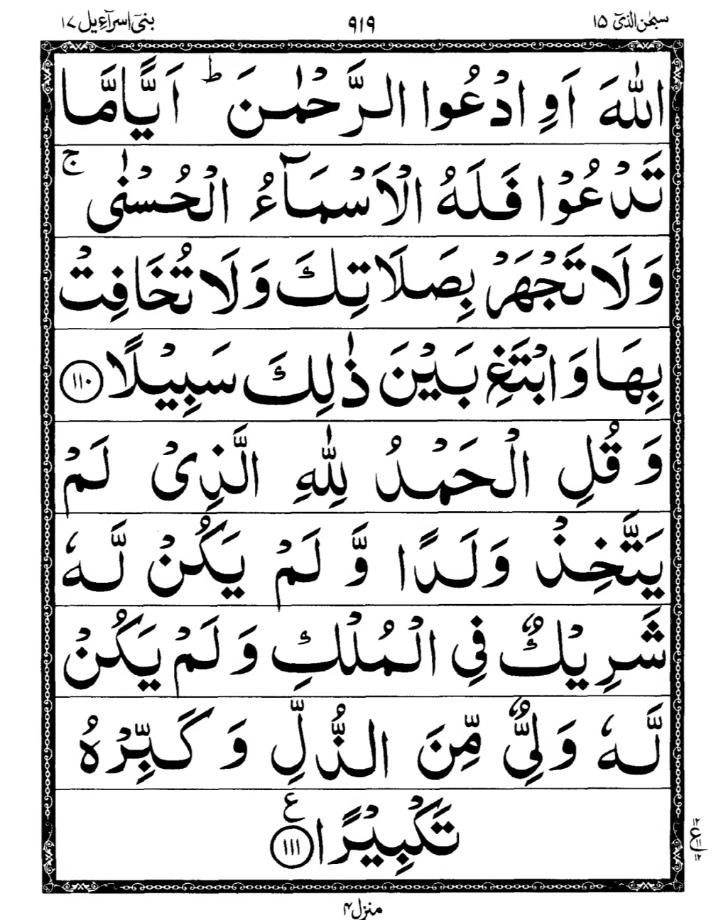 سبحٰن الذیٓ ۱۵
۹۱۹
بنیٓ اسرآءیل ۱۷
اللّٰهَ اَوِ ادْعُوا الرَّحْمٰنَ ؕ اَیًّامَّا
تَدْعُوْا فَلَهُ الْاَسْمَآءُ الْحُسْنٰی ۚ
وَلَا تَجْهَرْ بِصَلَاتِكَ وَلَا تُخَافِتْ
بِهَا وَابْتَغِ بَیْنَ ذٰلِكَ سَبِیْلًا ﴿۱۱۰﴾
وَ قُلِ الْحَمْدُ لِلّٰهِ الَّذِیْ لَمْ
یَتَّخِذْ وَلَدًا وَّ لَمْ یَكُنْ لَّهٗ
شَرِیْكٌ فِی الْمُلْكِ وَلَمْ یَكُنْ
لَّهٗ وَلِیٌّ مِّنَ الذُّلِّ وَ كَبِّرْهُ
تَكْبِیْرًا ﴿۱۱۱﴾ ع
۱۲
ع ۱۱
۱۲
منزل ۴